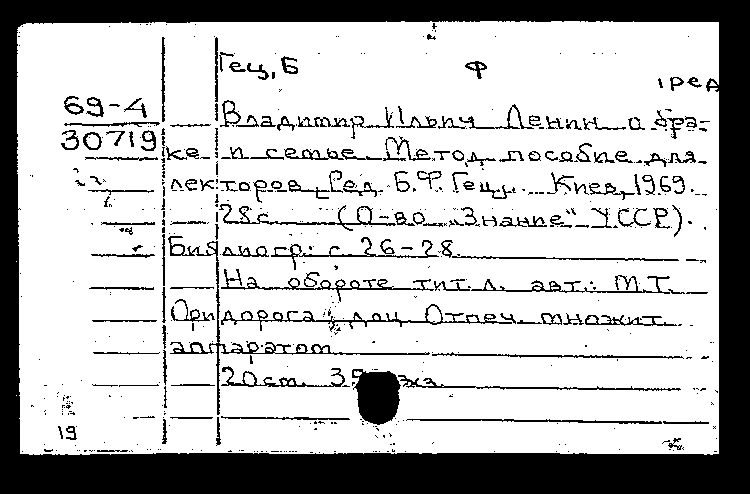 Гец, Б Ф
1 ред
69-4
30719
Владимир Ильич Ленин о бра-
ке и семье. Метод. пособие для
лекторов. [Ред. Б.Ф. Гец]. Киев, 1969.
28с. (О-во „Знание" УССР).
Библиогр.: с. 26-28.
На обороте тит. л. авт.: М.Т.
Придорога, доц. Отпеч. множит.
аппаратом.
20см. экз.
19